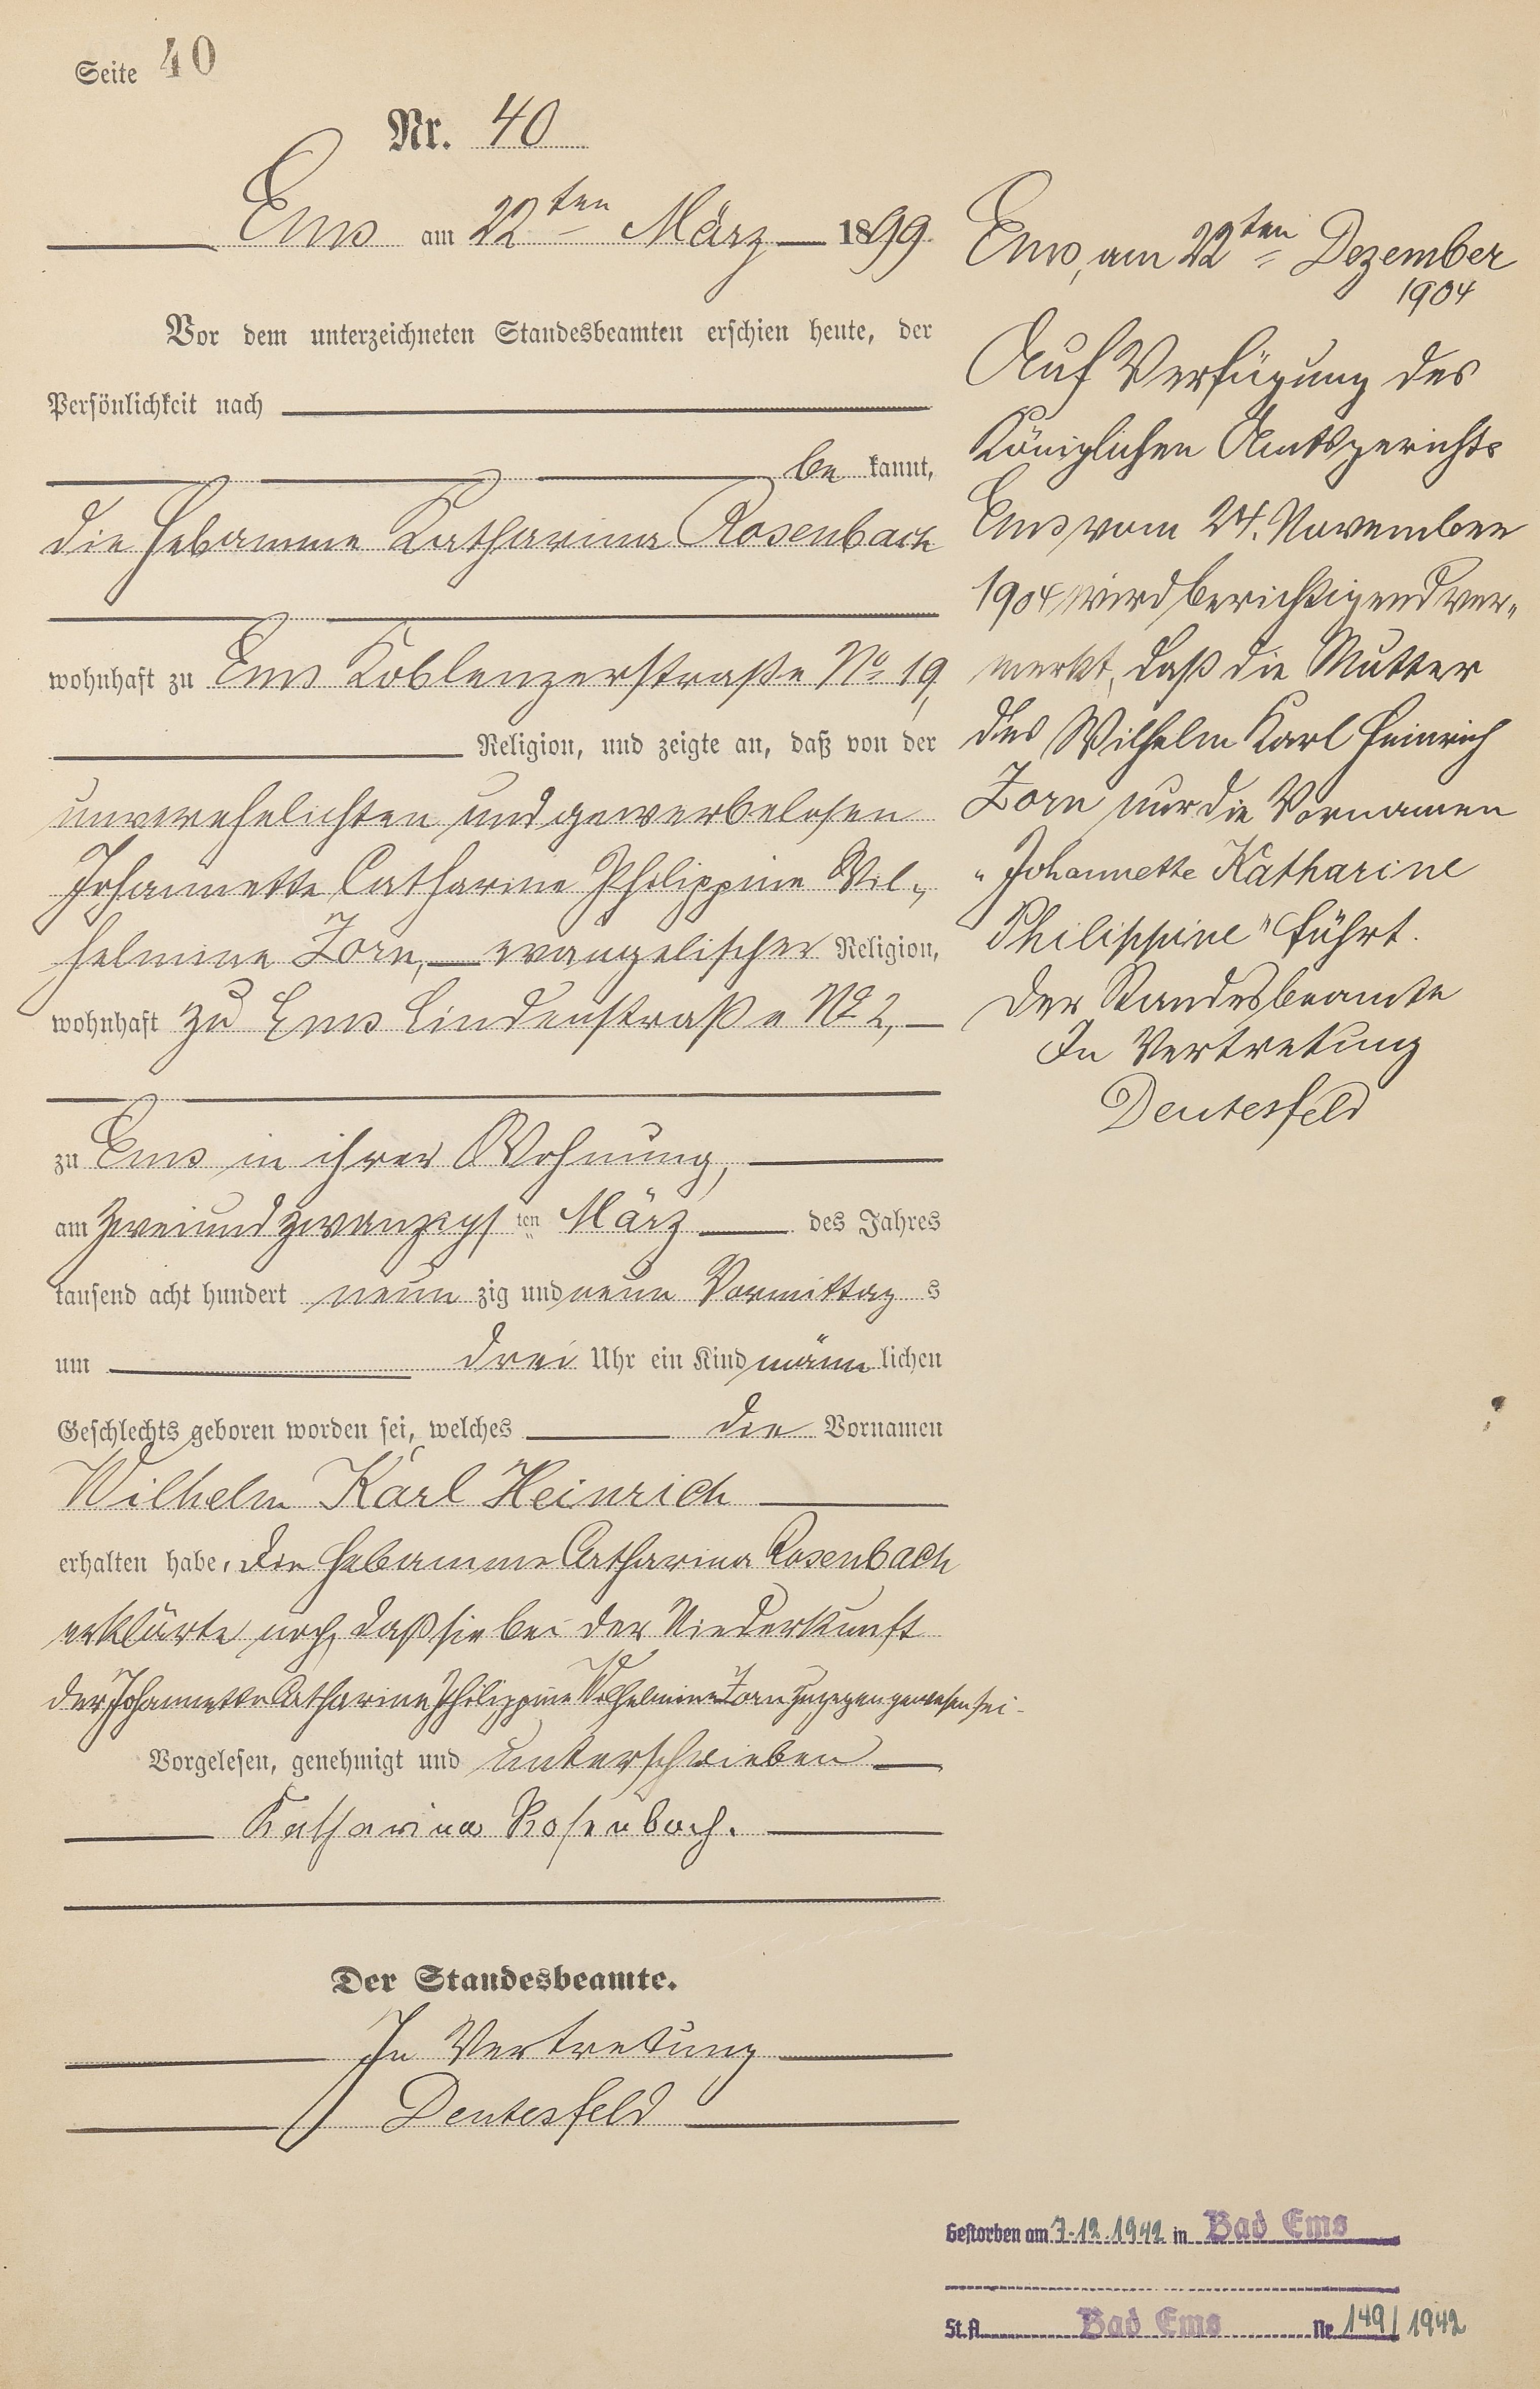 Seite 40
Nr. 40
Ems am 22ten März 1899.
Vor dem unterzeichneten Standesbeamten erschien heute, der
Persönlichkeit nach
be kannt,
die Hebamme Katharina Rosenbach
wohnhaft zu Ems Koblenzerstraße No 19,
Religion, und zeigte an, daß von der
unverehelichten und gewerbelosen
Johannette Catharine Philippine Wil-
helmine Zorn, evangelischer Religion,
wohnhaft zu Ems Lindenstraße No 2,
zu Ems in ihrer Wohnung,
am zweiundzwanzigs ten März des Jahres
tausend acht hundert neun zig und neun Vormittag s
um drei Uhr ein Kind männ lichen
Geschlechts geboren worden sei, welches die Vornamen
Wilhelm Karl Heinrich
erhalten habe. Die Hebamme Catharina Rosenbach
erklärte noch, daß sie bei der Niederkunft
der Johannette Catharine Philippine Wilhelmine Zorn zugegen gewesen sei.
Vorgelesen, genehmigt und unterschrieben
Katharina Rosenbach.
Der Standesbeamte.
In Vertretung
Deutesfeld
Ems, am 22ten Dezember
1904
Auf Verfügung des
Königlichen Amtsgerichts
Ems vom 24. November
1904 wird berichtigend ver-
merkt, daß die Mutter
des Wilhelm Karl Heinrich
Zorn nur die Vornamen
"Johannette Katharine
Philippine" führt.
Der Standesbeamte
In Vertretung
Deutesfeld
Gestorben am 7.12.1942 in Bad Ems
St. A. Bad Ems Nr. 149/1942